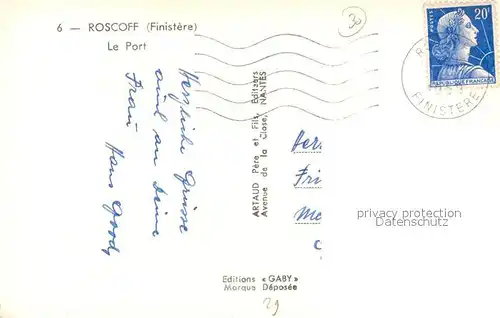 6 — ROSCOFF (Finistère)
Le Port
30
POSTES
20F
REPUBLIQUE FRANÇAISE
FINISTERE
Herzliche Grüsse
auch an Deine
Frau Hans
ARTAUD Père et Fils, Editeurs
Avenue de la Close, NANTES
Her
Fri
privacy protection
Datenschutz
Editions « GABY »
Marque Déposée
29